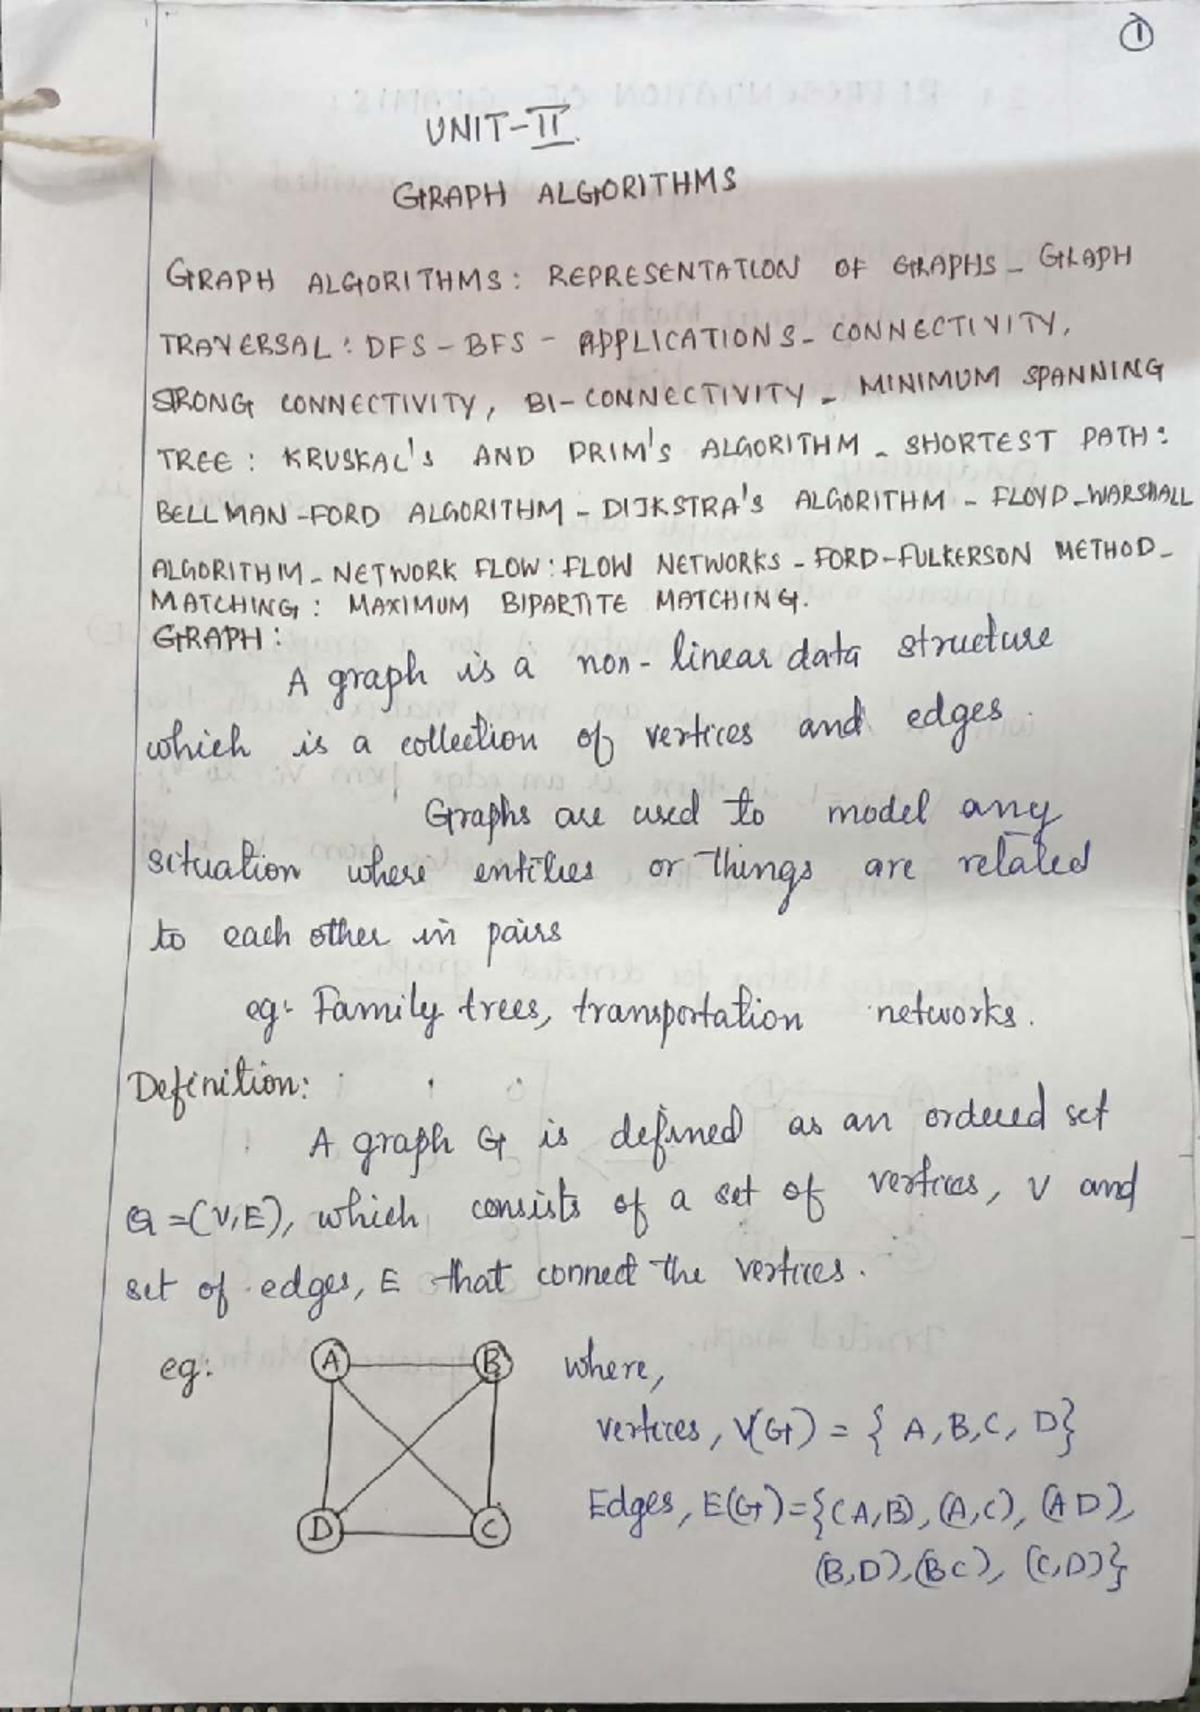 1
UNIT-II
GRAPH ALGORITHMS
GRAPH ALGORITHMS: REPRESENTATION OF GRAPHS - GRAPH
TRAVERSAL: DFS - BFS - APPLICATIONS - CONNECTIVITY,
STRONG CONNECTIVITY, BI-CONNECTIVITY - MINIMUM SPANNING
TREE: KRUSKAL'S AND PRIM'S ALGORITHM - SHORTEST PATH:
BELLMAN-FORD ALGORITHM - DIJKSTRA'S ALGORITHM - FLOYD-WARSHALL
ALGORITHM - NETWORK FLOW: FLOW NETWORKS - FORD-FULKERSON METHOD -
MATCHING: MAXIMUM BIPARTITE MATCHING.
GRAPH:
A graph is a non-linear data structure
which is a collection of vertices and edges.
Graphs are used to model any
situation where entities or things are related
to each other in pairs
eg: Family trees, transportation networks.
Definition:
A graph G is defined as an ordered set
G = (V, E), which consists of a set of vertices, V and
set of edges, E that connect the vertices.
eg: A B where,
vertices, V(G) = { A, B, C, D}
Edges, E(G) = {(A,B), (A,C), (A D),
D C (B,D), (B C), (C,D)}